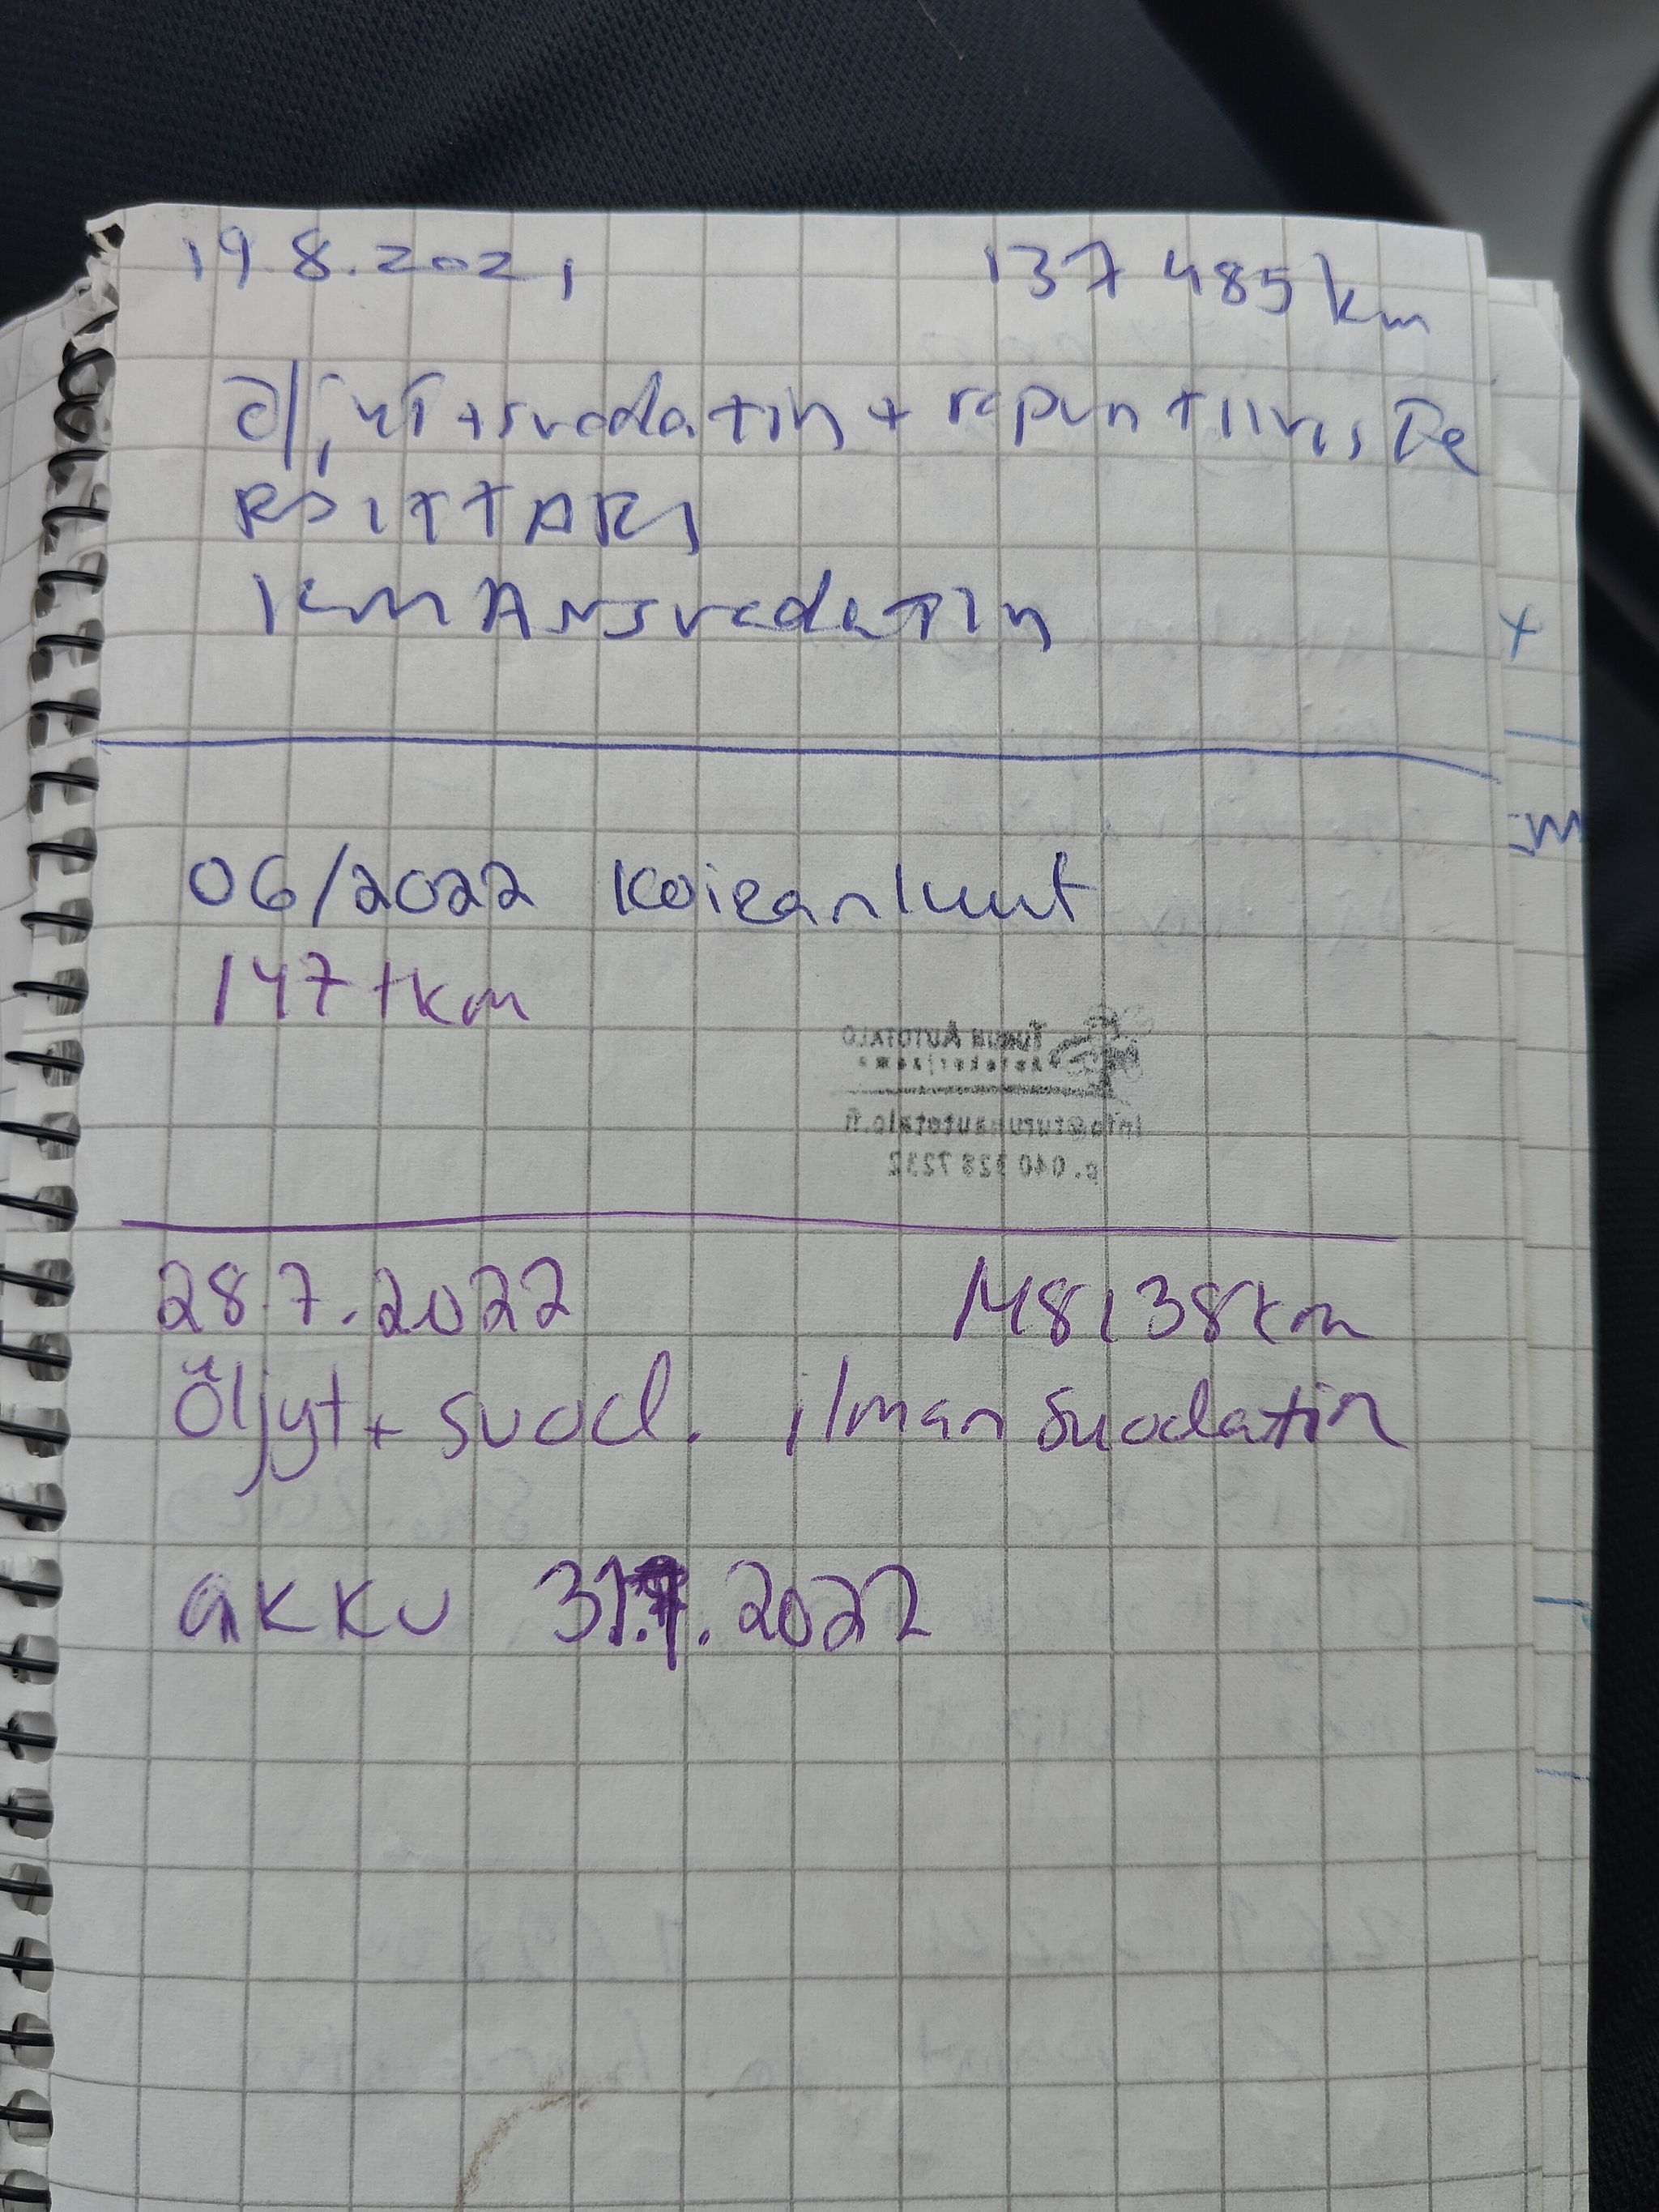 19.8.2021 137 485 km
öljyt + suodatin + ropun tiiviste
PSITTARI
ILMANSUODATIN
06/2022 Koiranluut
147 tkm
TURUN AUTOTALO
info@turunautotalo.fi
p. 040 528 7232
28.7.2022 148138km
Öljyt + suod. ilmansuodatin
akku 31.7.2022